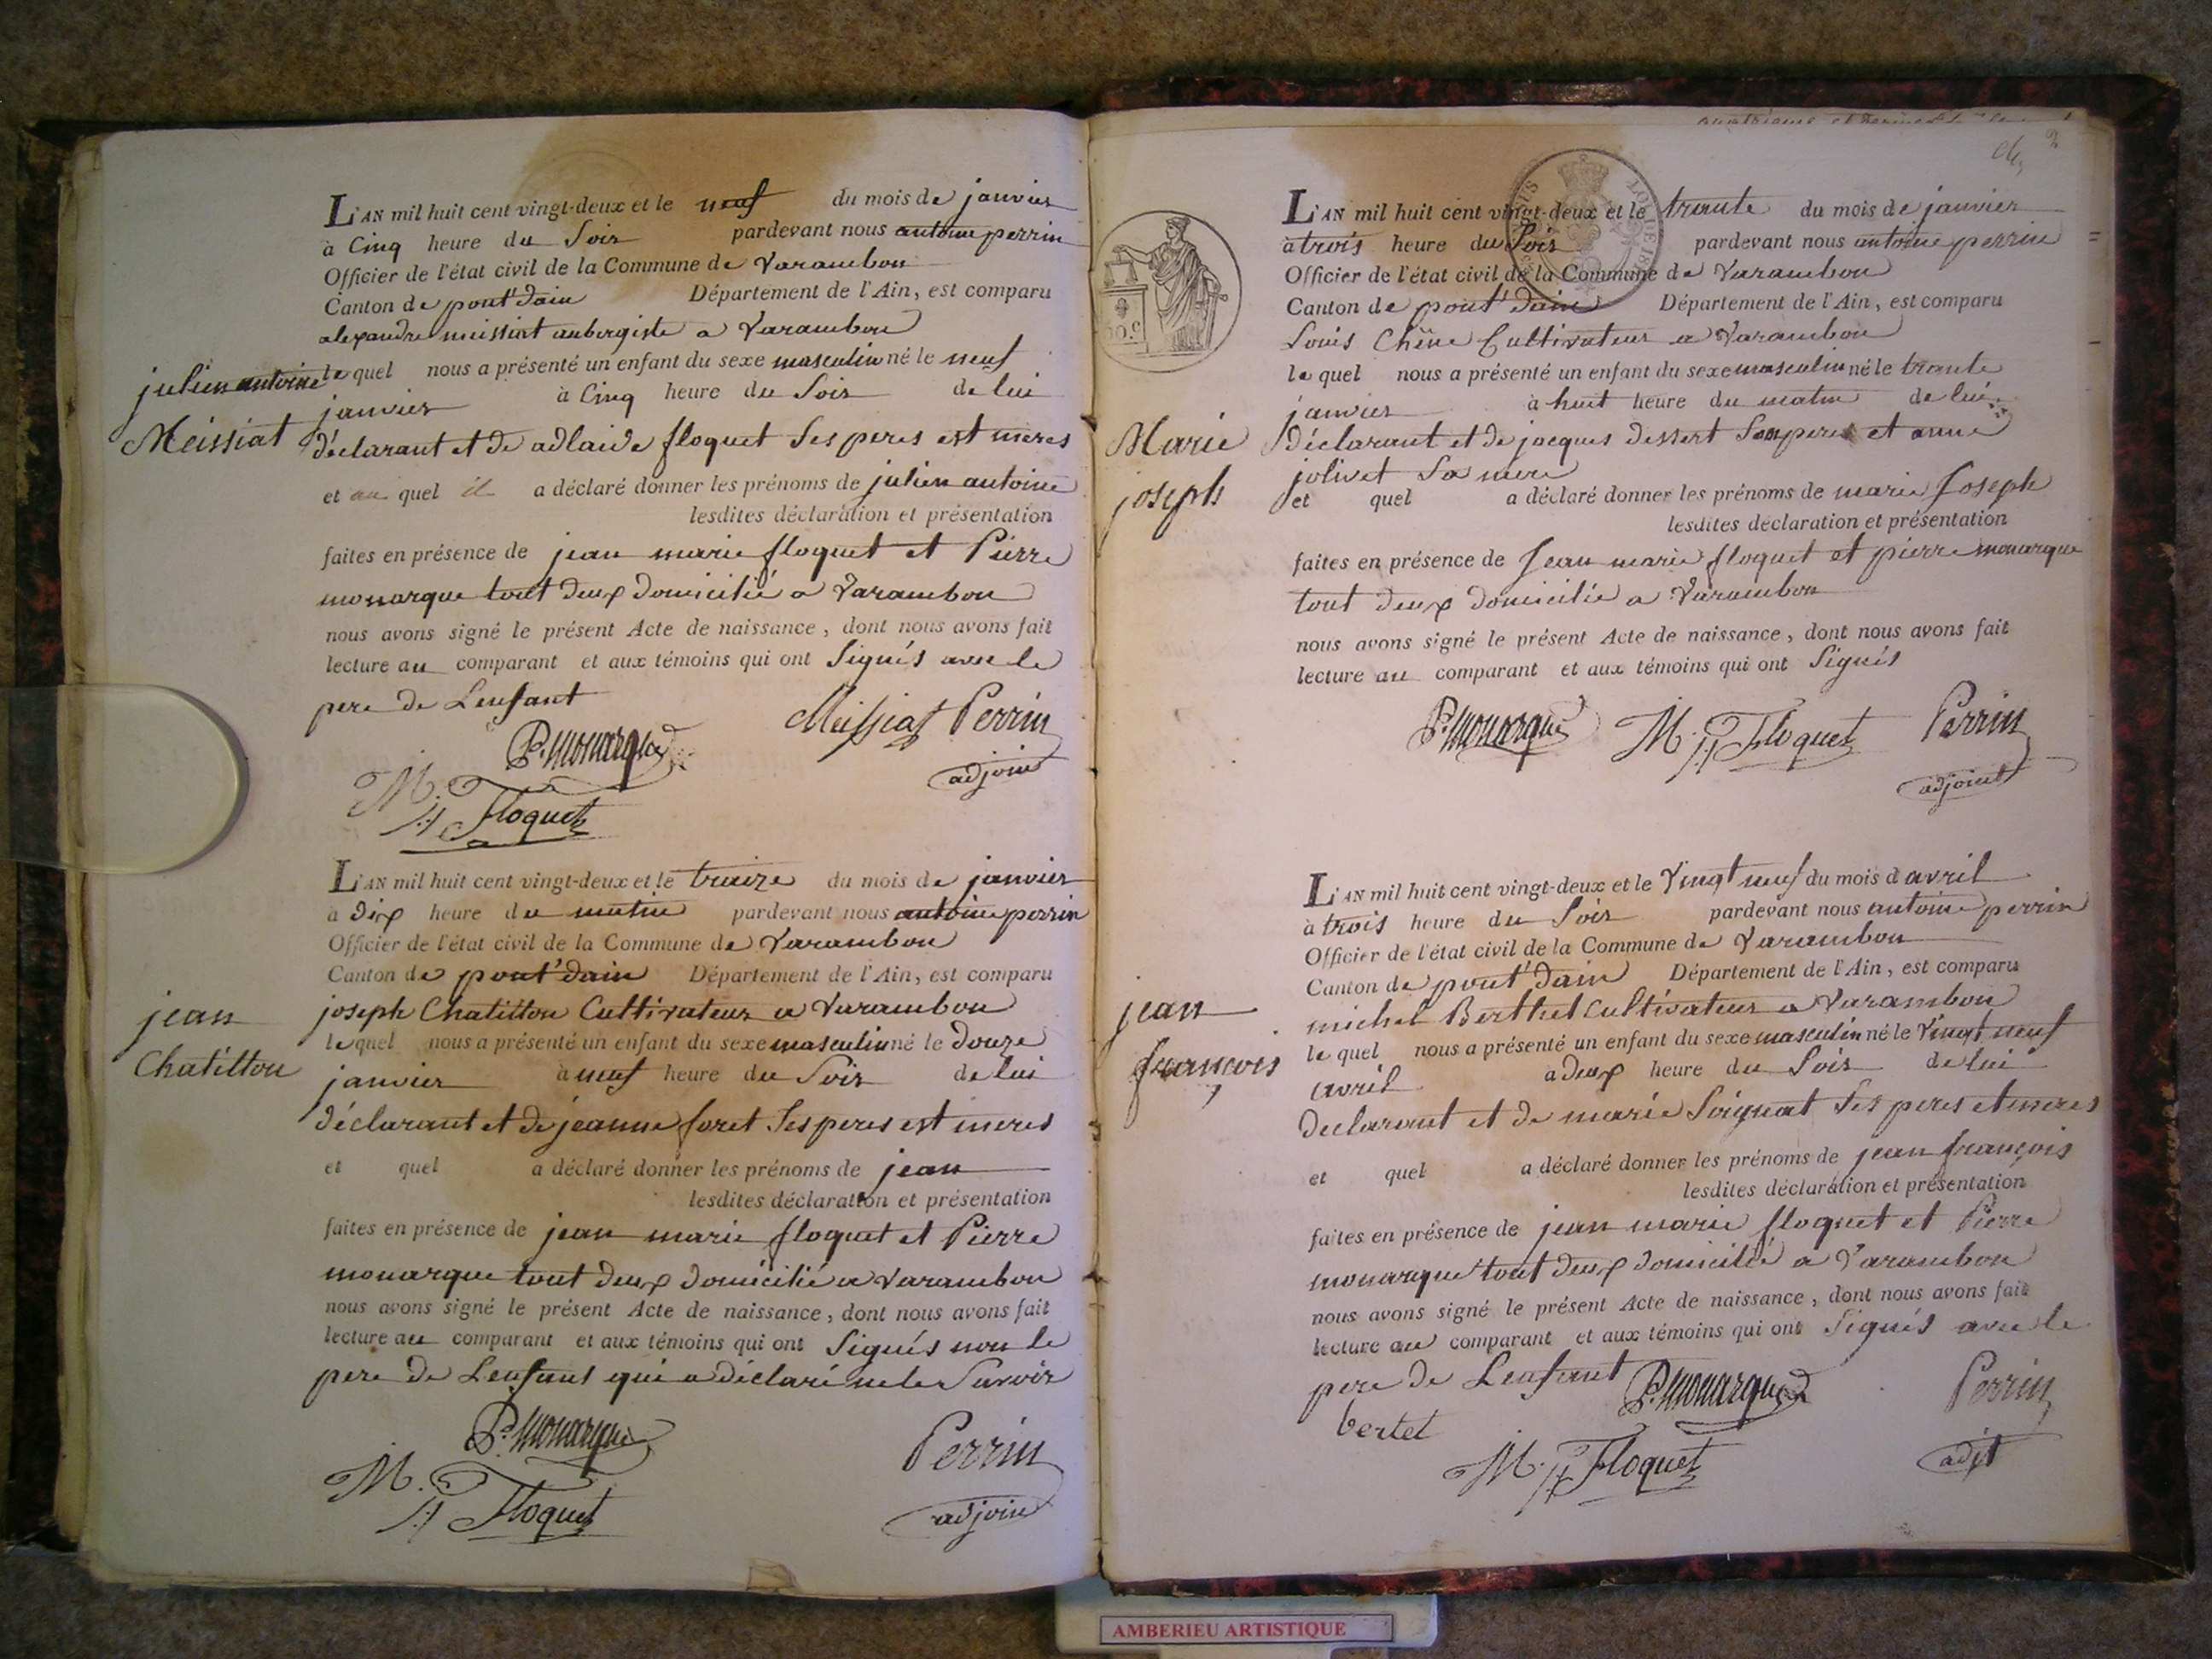 L'AN mil huit cent vingt-deux et le neuf du mois de janvier
à Cinq heure du Soir pardevant nous antoine perrin
Officier de l'état civil de la Commune de Varambon
Canton de pont'dain Département de l'Ain, est comparu
alexandre meissiat aubergiste a Varambon
le quel nous a présenté un enfant du sexe masculin né le neuf
janvier à Cinq heure du Soir de lui
déclarant et de adlaide floquet Ses peres est meres
et au quel il a déclaré donner les prénoms de julien antoine
lesdites déclaration et présentation
faites en présence de jean marie floquet et Pierre
monarque tout deux domicilié a Varambon
nous avons signé le présent Acte de naissance, dont nous avons fait
lecture au comparant et aux témoins qui ont Signés avec le
pere de Lenfant
julien antoine
Meissiat
P. Monarque
Meissiat
Perrin
adjoint
J. M. Floquet
L'AN mil huit cent vingt-deux et le traize du mois de janvier
à dix heure du matin pardevant nous antoine perrin
Officier de l'état civil de la Commune de Varambon
Canton de pont'dain Département de l'Ain, est comparu
joseph Chatillon Cultivateur a Varambon
le quel nous a présenté un enfant du sexe masculin né le douze
janvier à neuf heure du Soir de lui
déclarant et de jeanne foret Ses peres est meres
et quel a déclaré donner les prénoms de jean
lesdites déclaration et présentation
faites en présence de jean marie floquet et Pierre
monarque tout deux domicilié a Varambon
nous avons signé le présent Acte de naissance, dont nous avons fait
lecture au comparant et aux témoins qui ont Signés non le
pere de Lenfant qui a déclaré ne le Savoir
jean
Chatillon
P. Monarque
Perrin
adjoint
J. M. Floquet
2
L'AN mil huit cent vingt-deux et le trante du mois de janvier
à trois heure du Soir pardevant nous antoine perrin
Officier de l'état civil de la Commune de Varambon
Canton de pont'dain Département de l'Ain, est comparu
Louis Chêne Cultivateur a Varambon
le quel nous a présenté un enfant du sexe masculin né le trante
janvier à huit heure du matin de lui
déclarant et de jacques dessert Son pere et anne
jolivet Sa mere
et quel a déclaré donner les prénoms de marie Joseph
lesdites déclaration et présentation
faites en présence de Jean marie floquet et pierre monarque
tout deux domicilié a Varambon
nous avons signé le présent Acte de naissance, dont nous avons fait
lecture au comparant et aux témoins qui ont Signés
Marie
joseph
P. Monarque
J. M. Floquet
Perrin
adjoint
L'AN mil huit cent vingt-deux et le Vingt neuf du mois d avril
à trois heure du Soir pardevant nous antoine perrin
Officier de l'état civil de la Commune de Varambon
Canton de pont'dain Département de l'Ain, est comparu
michel Berthet Cultivateur a Varambon
le quel nous a présenté un enfant du sexe masculin né le Vingt neuf
avril a deux heure du Soir de lui
declarant et de marie Soignat Ses peres et meres
et quel a déclaré donner les prénoms de jean françois
lesdites déclaration et présentation
faites en présence de jean marie floquet et Pierre
monarque tout deux domicilié a Varambon
nous avons signé le présent Acte de naissance, dont nous avons fait
lecture au comparant et aux témoins qui ont Signés avec le
pere de Lenfant
jean
françois
P. Monarque
Perrin
bertet
J. M. Floquet
adjt
AMBERIEU ARTISTIQUE